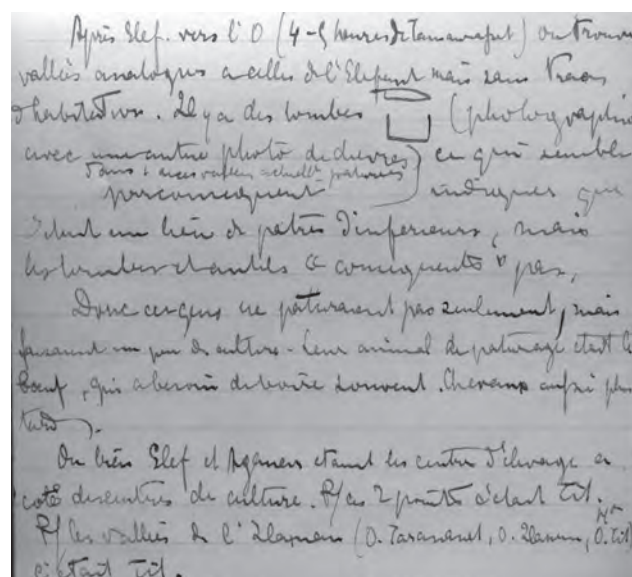 Après Elef. vers l'O (4-5 heures de Tamanrasset) on trouve
vallées analogues a celles de l'Elefant mais sans traces
d'habitation. Il y a des tombes (photographie
avec une autre photo de chevres) ce qui semble
dans vallées actuellt paturées
par consequent indiquer que
c'etant un lieu de patres d'inferieurs, mais
les tombes et consequents pas,
Donc ces gens ne paturaient pas seulement, mais
faisaient un peu de culture - Leur animal de paturage etait le
boeuf, qui a besoin de boire souvent. Chevaux aussi plus
tard).
Ou bien Elef et Agamen etant les centres d'elevage a
coté des centres de culture. P/ ces 2 points c'etait Tit.
P/ les vallées de l' Ilaman (O. Taramanet, O. Ilaman, O. Tit)
c'etait Tit.